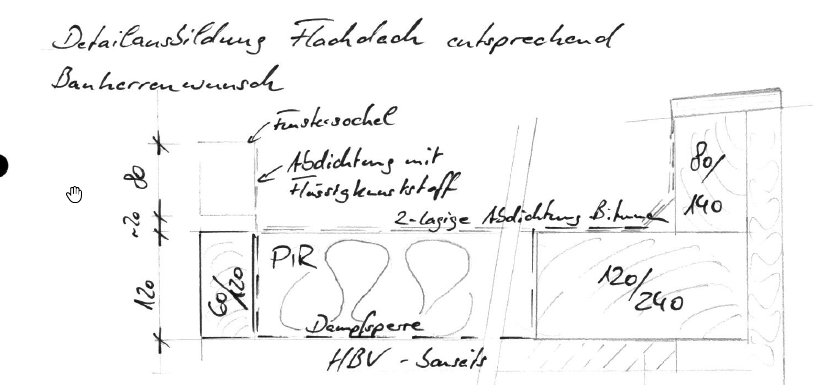 Detailausbildung Flachdach entsprechend
Bauherrenwunsch
Fenstersockel
Abdichtung mit
Flüssigkunststoff
80
~20
120
2-lagige Abdichtung Bitumen
80/
140
PIR
60/120
120/
240
Dampfsperre
HBV - bauseits